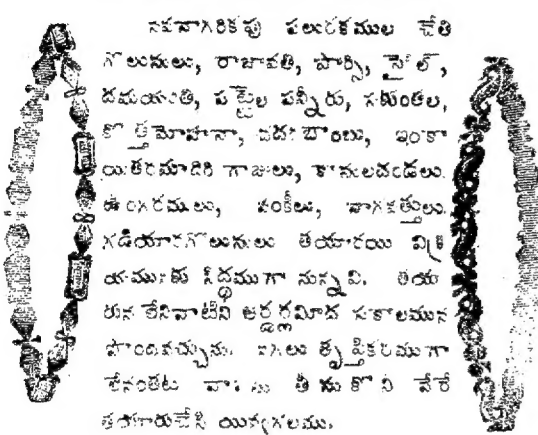 నవనాగరికపు పలురకముల చేతి
గొలుసులు, రాజావతి, పార్సి, సైలో,
దమయంతి, పట్టెల పన్నీరు, సకుంతల,
కొర్తమోహనా, చదరబాంబు, ఇంకా
యితరమాదిరి గాజులు, కాసులదండలు.
ఉంగరములు, వంకీలు, నాగకత్తులు.
గడియారగొలుసులు తయారయి విక్ర
యమునకు సిద్ధముగా నున్నవి. తయా
రున లేనివాటిని ఆర్డర్లమీద సకాలమున
పొందవచ్చును. నగలు తృప్తికరముగా
లేనంతట వాటిను తీసుకొని వేరే
తయారుచేసి యివ్వగలము.